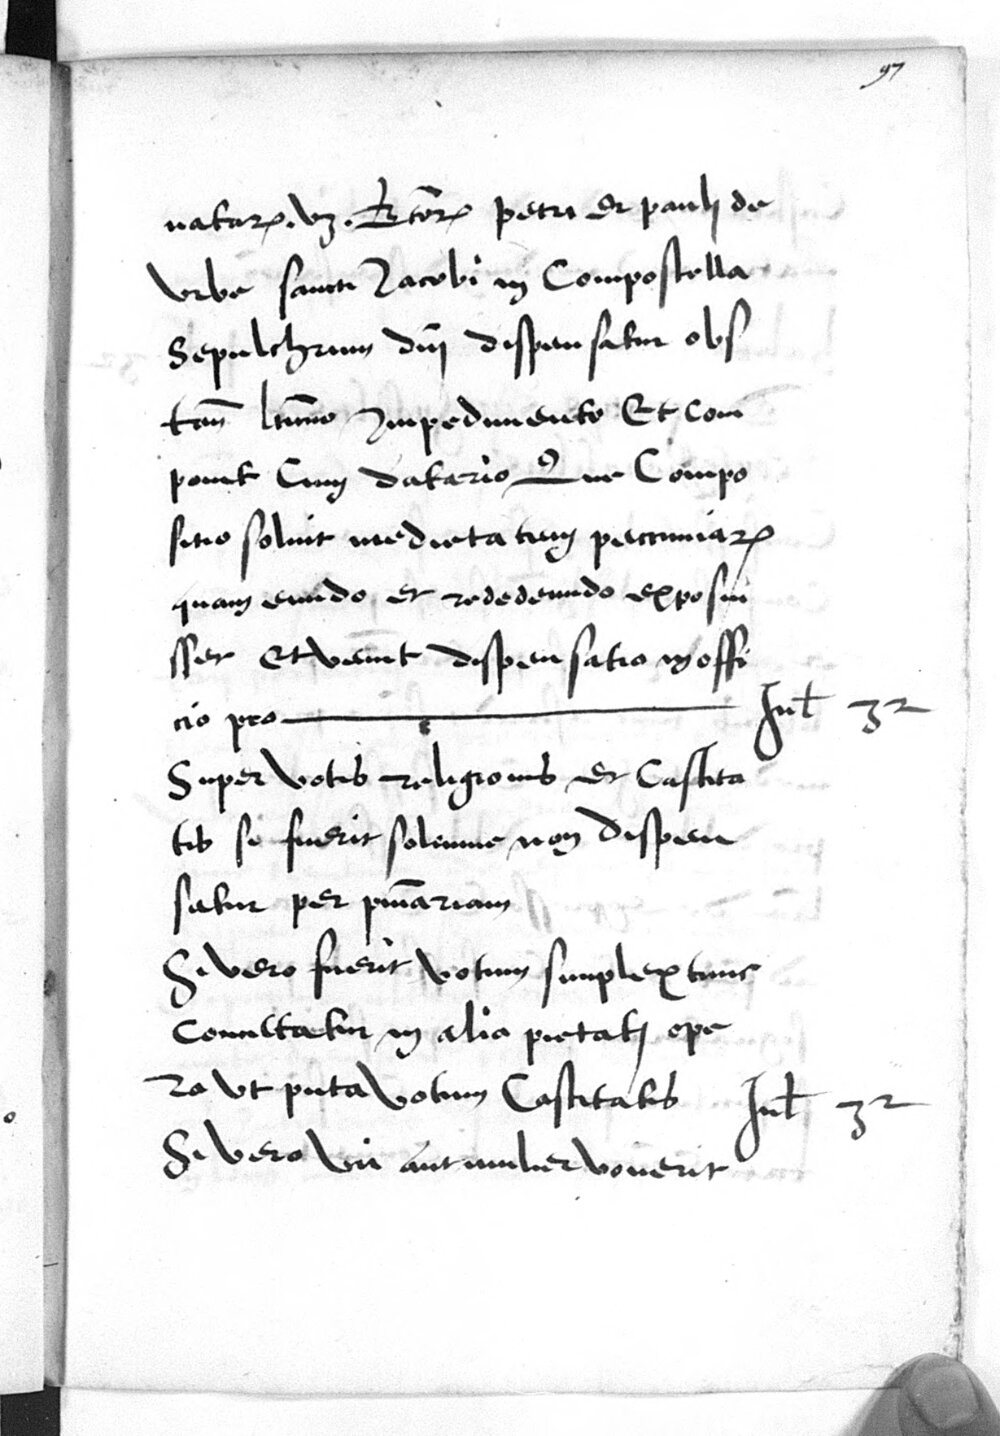 97
uatarꝝ. vz. Bt̄orꝝ petri et pauli de
vrbe sancti Jacobi in Compostella
Sepulchrum dn̄i dispensatur obs
tan̄ ltīmo Impedimento Et com
ponit Cum datario Que Compo
sitio soluit medietatem pecuniarꝝ
quam eundo et rededeundo exposui
sset Et venit dispensatio in offi
cio pro Jul 32
Super votis religionis et Castita
tis si fuerit solemne non dispen
satur per pn̄iariam
Si vero fuerit votum simplex tunc
Comutatur in alia pietatis ope
ra vt puta votum Castitatis Jul 32
Si vero vir aut mulier vouerit